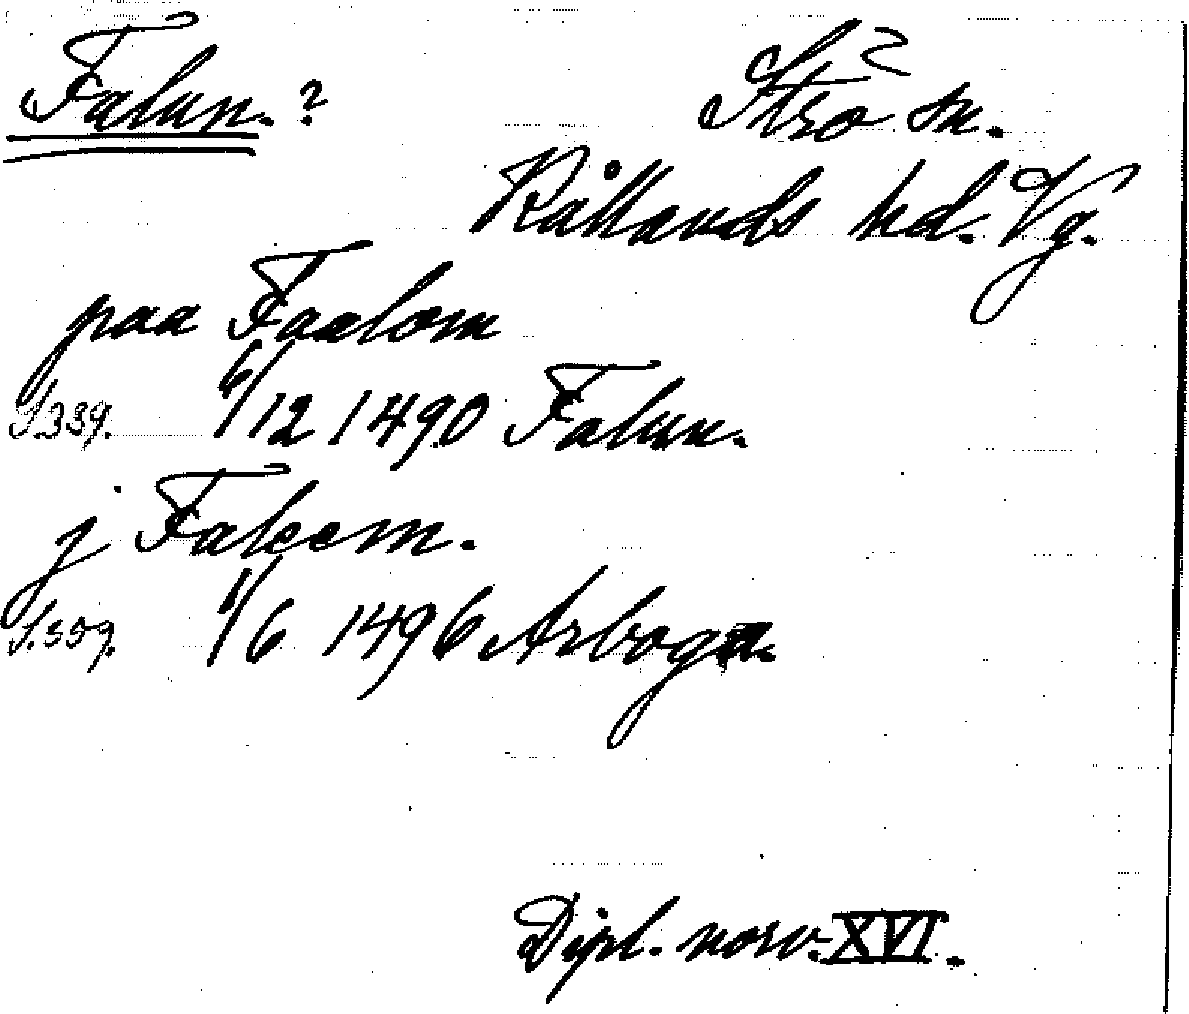 Falun.? Strö sn.
Kållands hd. Vg.
paa Faalom
S.339. 6/12 1490 Falun.
j Faleem.
S.359. 1/6 1496 Arboga.
Dipl. norv. XVI.